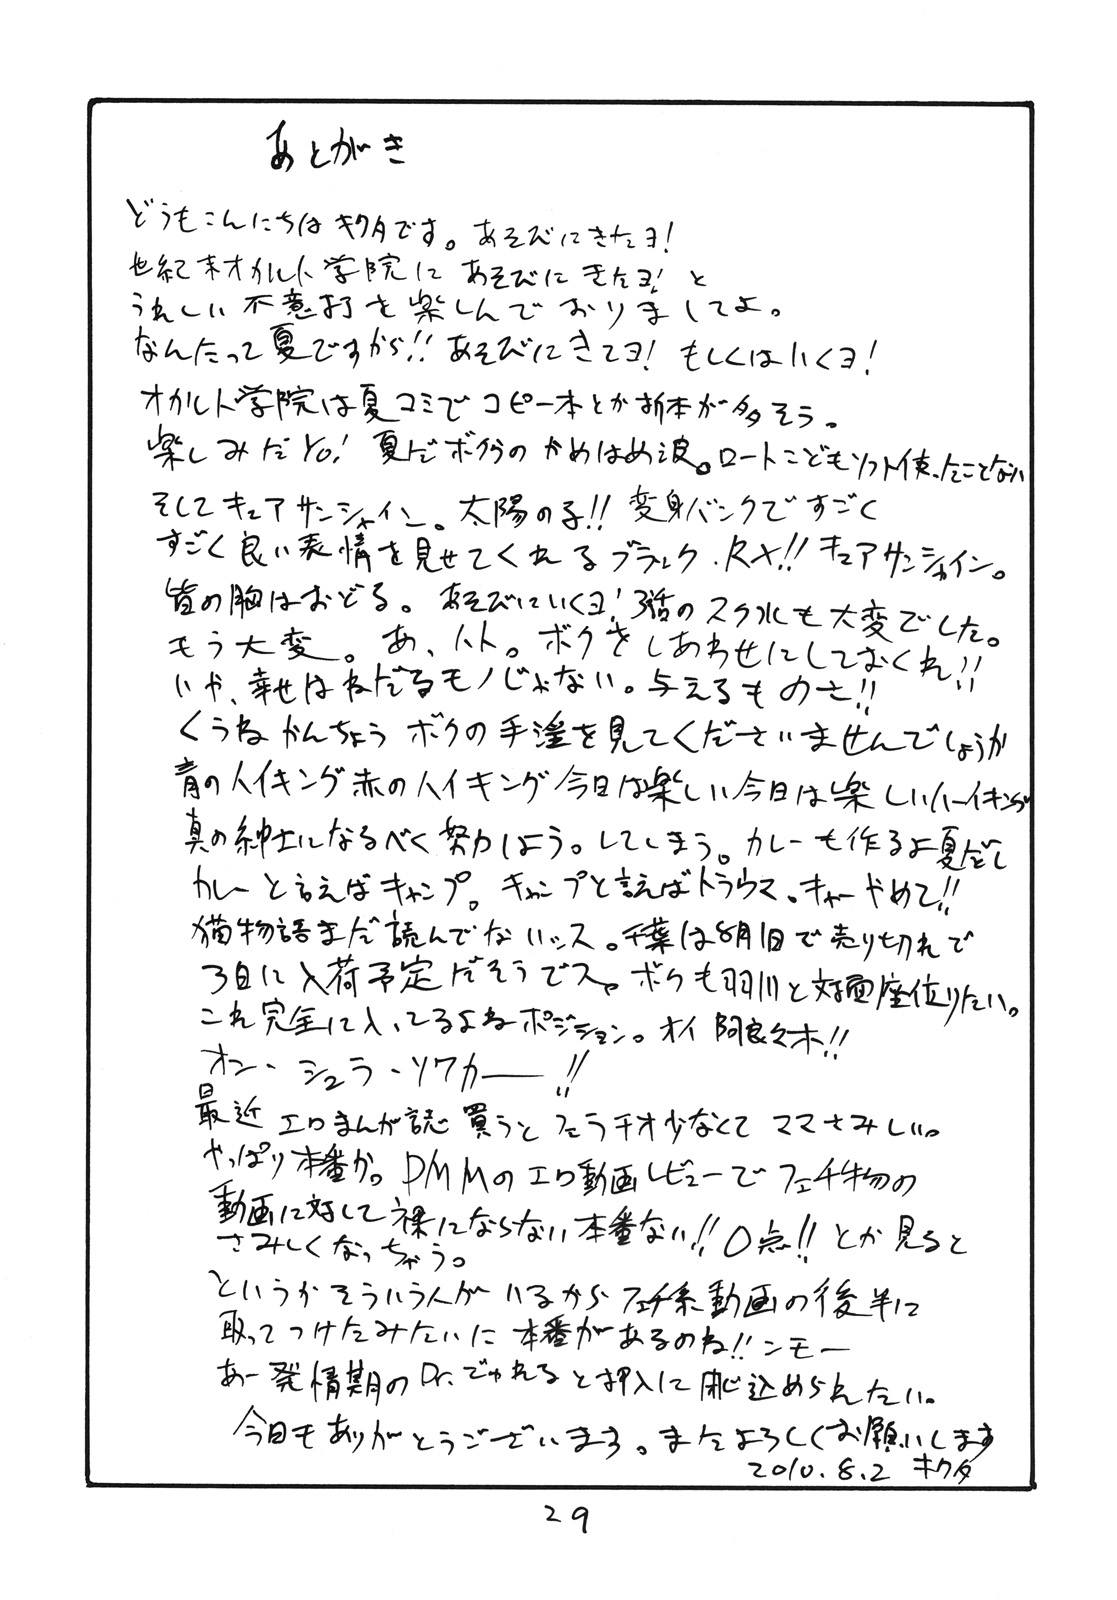 あとがき
どうもこんにちは キクタです。あそびにきたヨ!
世紀末オカルト学院に あそびに きたヨ! と
うれしい 不意打を楽しんでおりましてよ。
なんたって夏ですから!! あそびにきてヨ! もしくはいくヨ!
オカルト学院は夏コミで コピー本とか折本が多そう。
楽しみだYo! 夏だボクらの かめはめ波。ロートこどもソフト使ったことない
そしてキュアサンシャイン。太陽の子!! 変身バンクですごく
すごく良い表情を見せてくれるブラック.RX!! キュアサンシャイン。
皆の胸はおどる。あそびにいくヨ! 3話のスク水も大変でした。
もう大変。あ、ハト。ボクをしあわせにしておくれ!!
いや、幸せはねだるモノじゃない。与えるものさ!!
くうねかんちょう ボクの手淫を見てくださいませんでしょうか
青のハイキング赤のハイキング今日は楽しい今日は楽しいハーイキング
真の紳士になるべく努力しよう。してしまう。カレーも作るよ夏だし
カレーと言えばキャンプ。キャンプと言えばトラウマ。キャーやめて!!
猫物語まだ読んでないッス。千葉は8月1日で売り切れで
3日に入荷予定だそうでス。ボクも羽川と対面座位りたい。
これ完全に入ってるよねポジション。オイ阿良々木!!
オン・シュラ・ソワカー!!
最近 エロまんが誌 買うと フェラチオ少なくて ママさみしい。
やっぱり本番か。DMMのエロ動画レビューで フェチ物の
動画に対して裸にならない本番ない!! 0点!! とか見ると
さみしくなっちゃう。
というかそういう人がいるからフェチ系動画の後半に
取ってつけたみたいに本番があるのね!! ンモー
あー発情期のDr.でゅれると押入に閉じ込められたい。
今日もありがとうございます。またよろしくお願いします
2010.8.2 キクタ
29